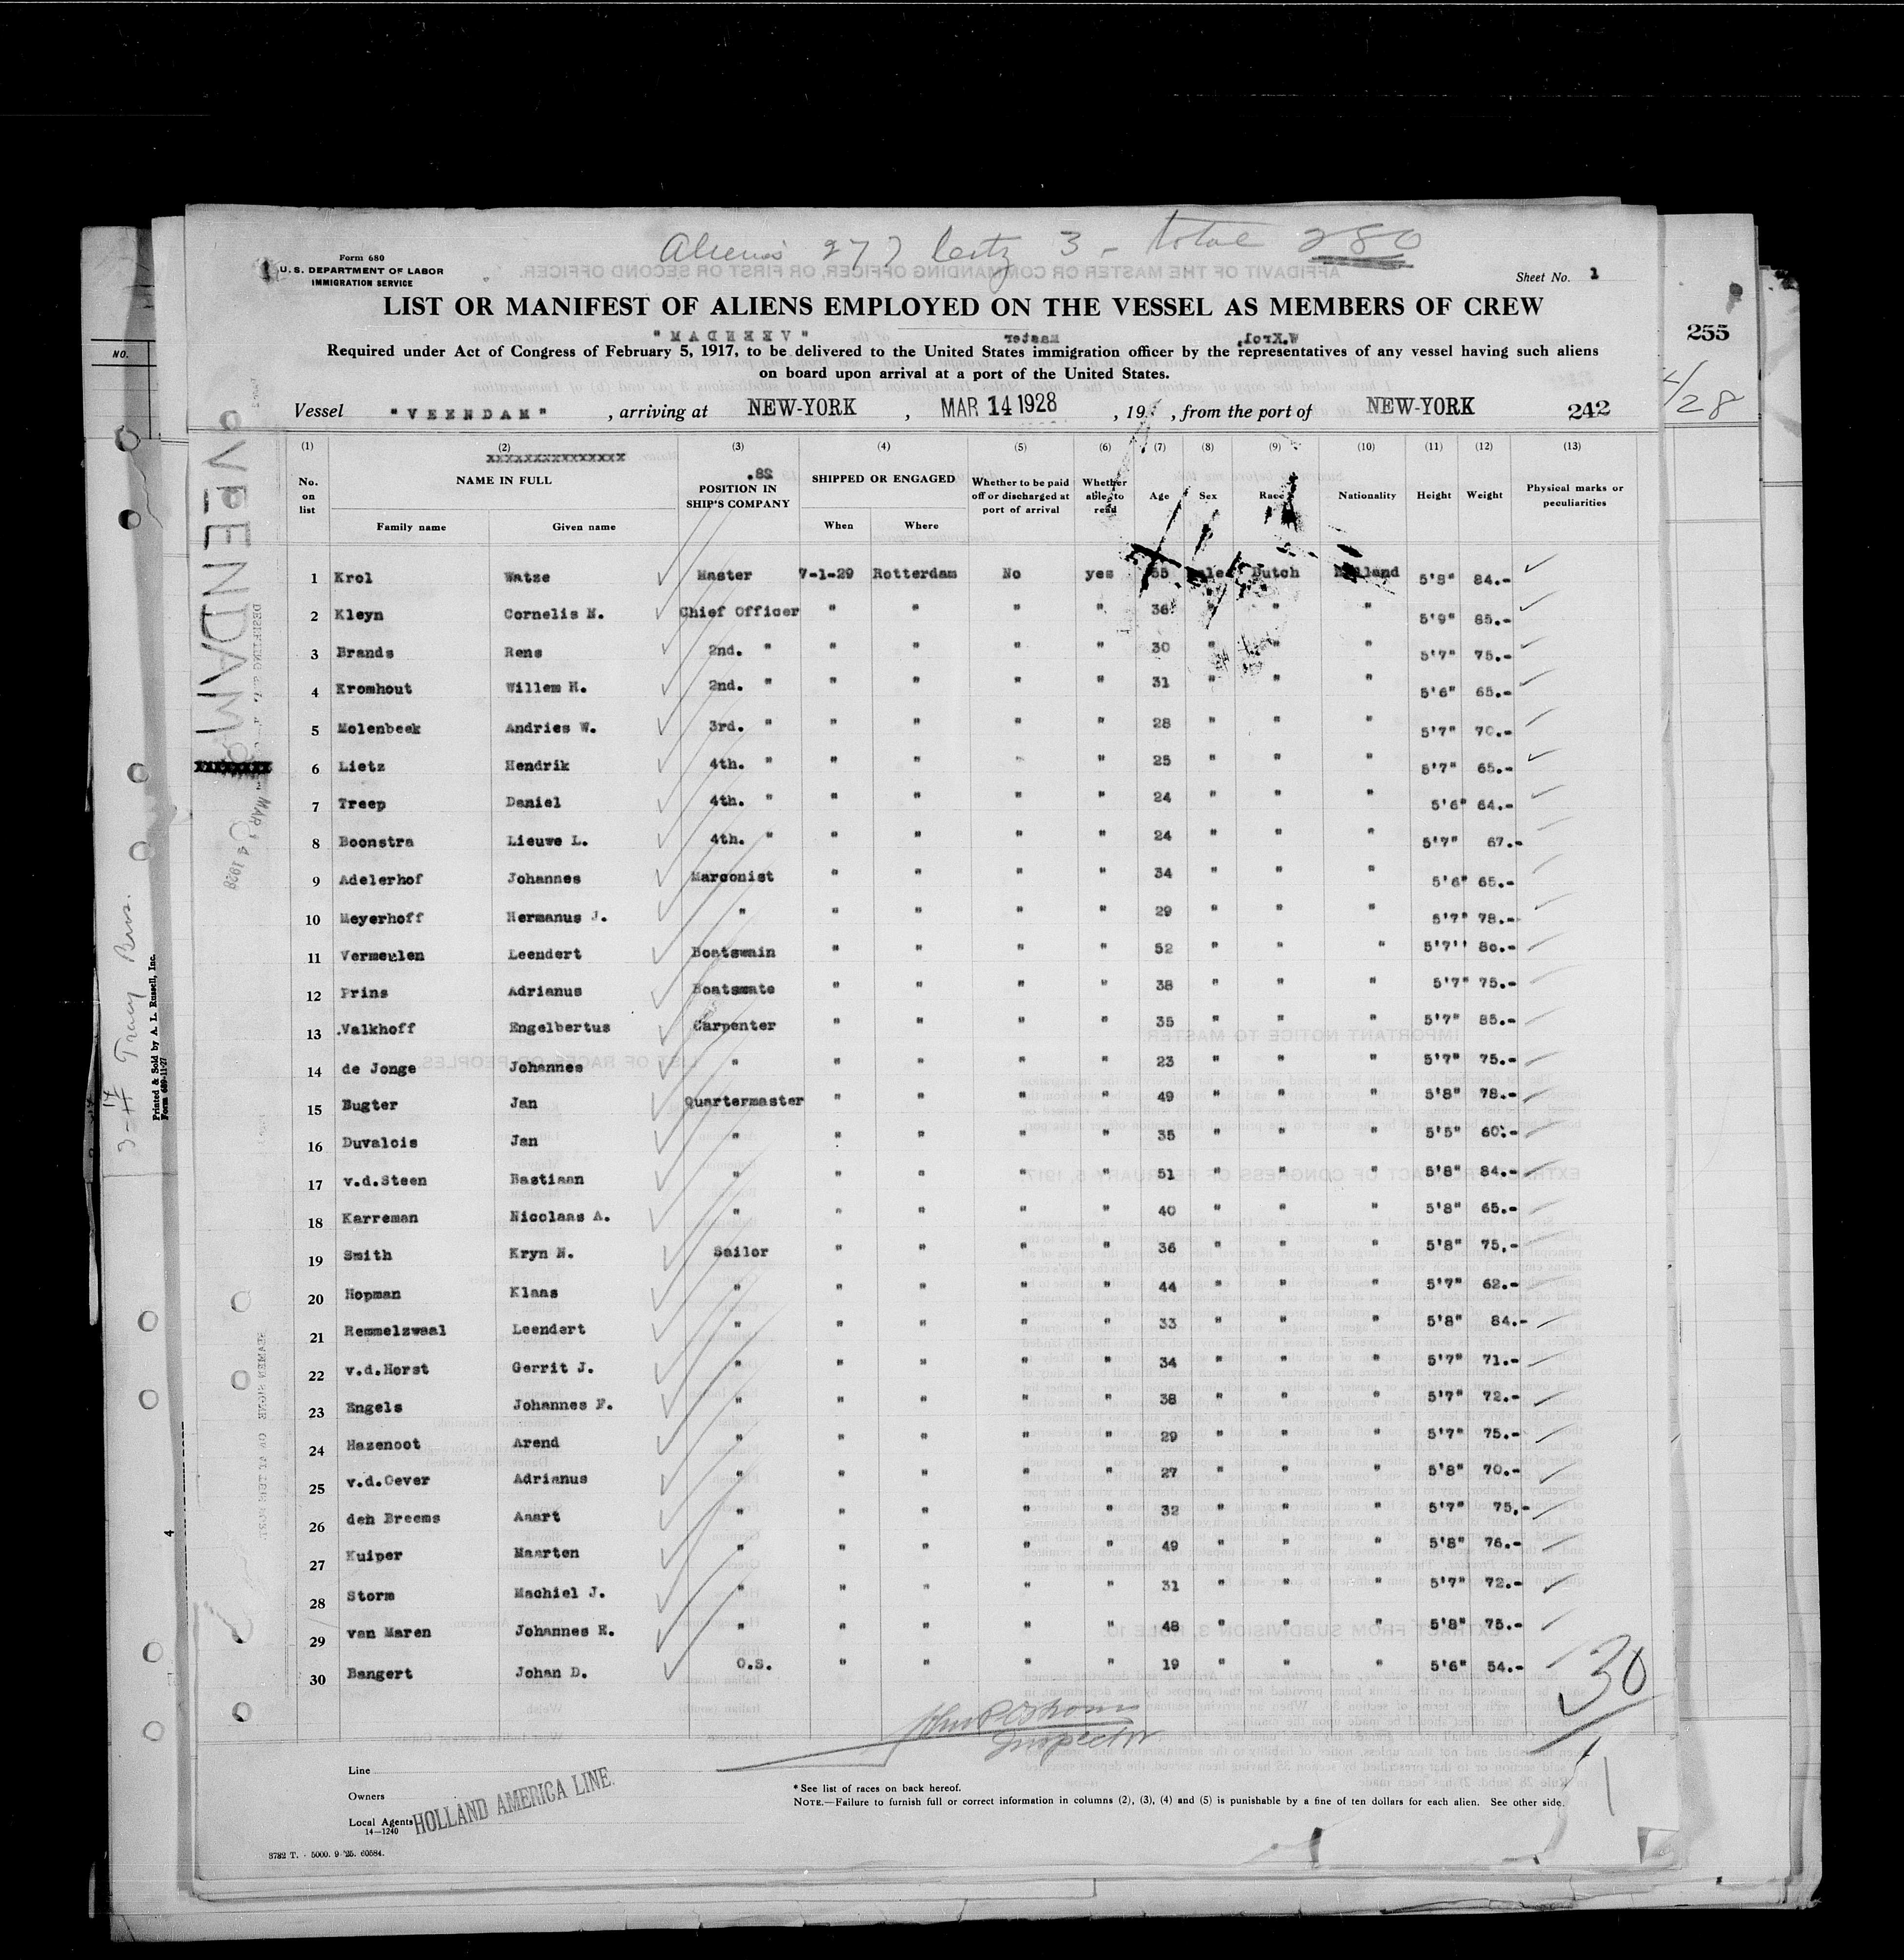 Aliens 277 Centz 3 - total 280
Form 680
U. S. DEPARTMENT OF LABOR
IMMIGRATION SERVICE
Sheet No. 1
LIST OR MANIFEST OF ALIENS EMPLOYED ON THE VESSEL AS MEMBERS OF CREW
Required under Act of Congress of February 5, 1917, to be delivered to the United States immigration officer by the representatives of any vessel having such aliens
on board upon arrival at a port of the United States.
255
4/28
Vessel "VEENDAM", arriving at NEW-YORK, MAR 14 1928, 19 , from the port of NEW-YORK 242
(1) (2) (3) (4) (5) (6) (7) (8) (9) (10) (11) (12) (13)
No. on list NAME IN FULL Family name Given name POSITION IN SHIP'S COMPANY SHIPPED OR ENGAGED When Where Whether to be paid off or discharged at port of arrival Whether able to read Age Sex Race Nationality Height Weight Physical marks or peculiarities
1 Krol Watze Master 7-1-29 Rotterdam No yes 55 Dutch Holland 5'8" 84.-
2 Kleyn Cornelis N. Chief Officer " " " " 36 " " " 5'9" 85.-
3 Brands Rens 2nd. " " " " " 30 " " " 5'7" 75.-
4 Kromhout Willem H. 2nd. " " " " " 31 " " " 5'6" 65.-
5 Molenbeek Andries W. 3rd. " " " " " 28 " " " 5'7" 70.-
6 Lietz Hendrik 4th. " " " " " 25 " " " 5'7" 65.-
7 Treep Daniel 4th. " " " " " 24 " " " 5'6" 64.-
8 Boonstra Lieuwe L. 4th. " " " " " 24 " " " 5'7" 67.-
9 Adelerhof Johannes Marconist " " " " 34 " " " 5'6" 65.-
10 Meyerhoff Hermanus J. " " " " " 29 " " " 5'7" 78.-
11 Vermeulen Leendert Boatswain " " " " 52 " " " 5'7'' 80.-
12 Prins Adrianus Boatsmate " " " " 38 " " " 5'7" 75.-
13 .Valkhoff Engelbertus Carpenter " " " " 35 " " " 5'7" 85.-
14 de Jonge Johannes " " " " " 23 " " " 5'7" 75.-
15 Bugter Jan Quartermaster " " " " 49 " " " 5'8" 78.-
16 Duvalois Jan " " " " " 35 " " " 5'5" 60.-
17 v.d.Steen Bastiaan " " " " " 51 " " " 5'8" 84.-
18 Karreman Nicolaas A. " " " " " 40 " " " 5'8" 65.-
19 Smith Kryn N. Sailor " " " " 36 " " " 5'8" 75.-
20 Hopman Klaas " " " " " 44 " " " 5'7" 62.-
21 Remmelzwaal Leendert " " " " " 33 " " " 5'8" 84.-
22 v.d.Horst Gerrit J. " " " " " 34 " " " 5'7" 71.-
23 Engels Johannes F. " " " " " 38 " " " 5'7" 72.-
24 Hazenoot Arend " " " " " 29 " " " 5'7" 75.-
25 v.d.Oever Adrianus " " " " " 27 " " " 5'8" 70.-
26 den Breems Aaart " " " " " 32 " " " 5'7" 75.-
27 Kuiper Maarten " " " " " 49 " " " 5'8" 76.-
28 Storm Machiel J. " " " " " 31 " " " 5'7" 72.-
29 van Maren Johannes E. " " " " " 48 " " " 5'8" 75.-
30 Bangert Johan D. O.S. " " " " 19 " " " 5'6" 54.-
30
Inspector
Line
Owners
Local Agents HOLLAND AMERICA LINE.
14—1240
* See list of races on back hereof.
NOTE.—Failure to furnish full or correct information in columns (2), (3), (4) and (5) is punishable by a fine of ten dollars for each alien. See other side.
3782 T. - 5000. 9-'25. 60584.
VEENDAM
MAR 14 1928
Printed & Sold by A. L. Russell, Inc.
Form 689-11-27
NO.
4